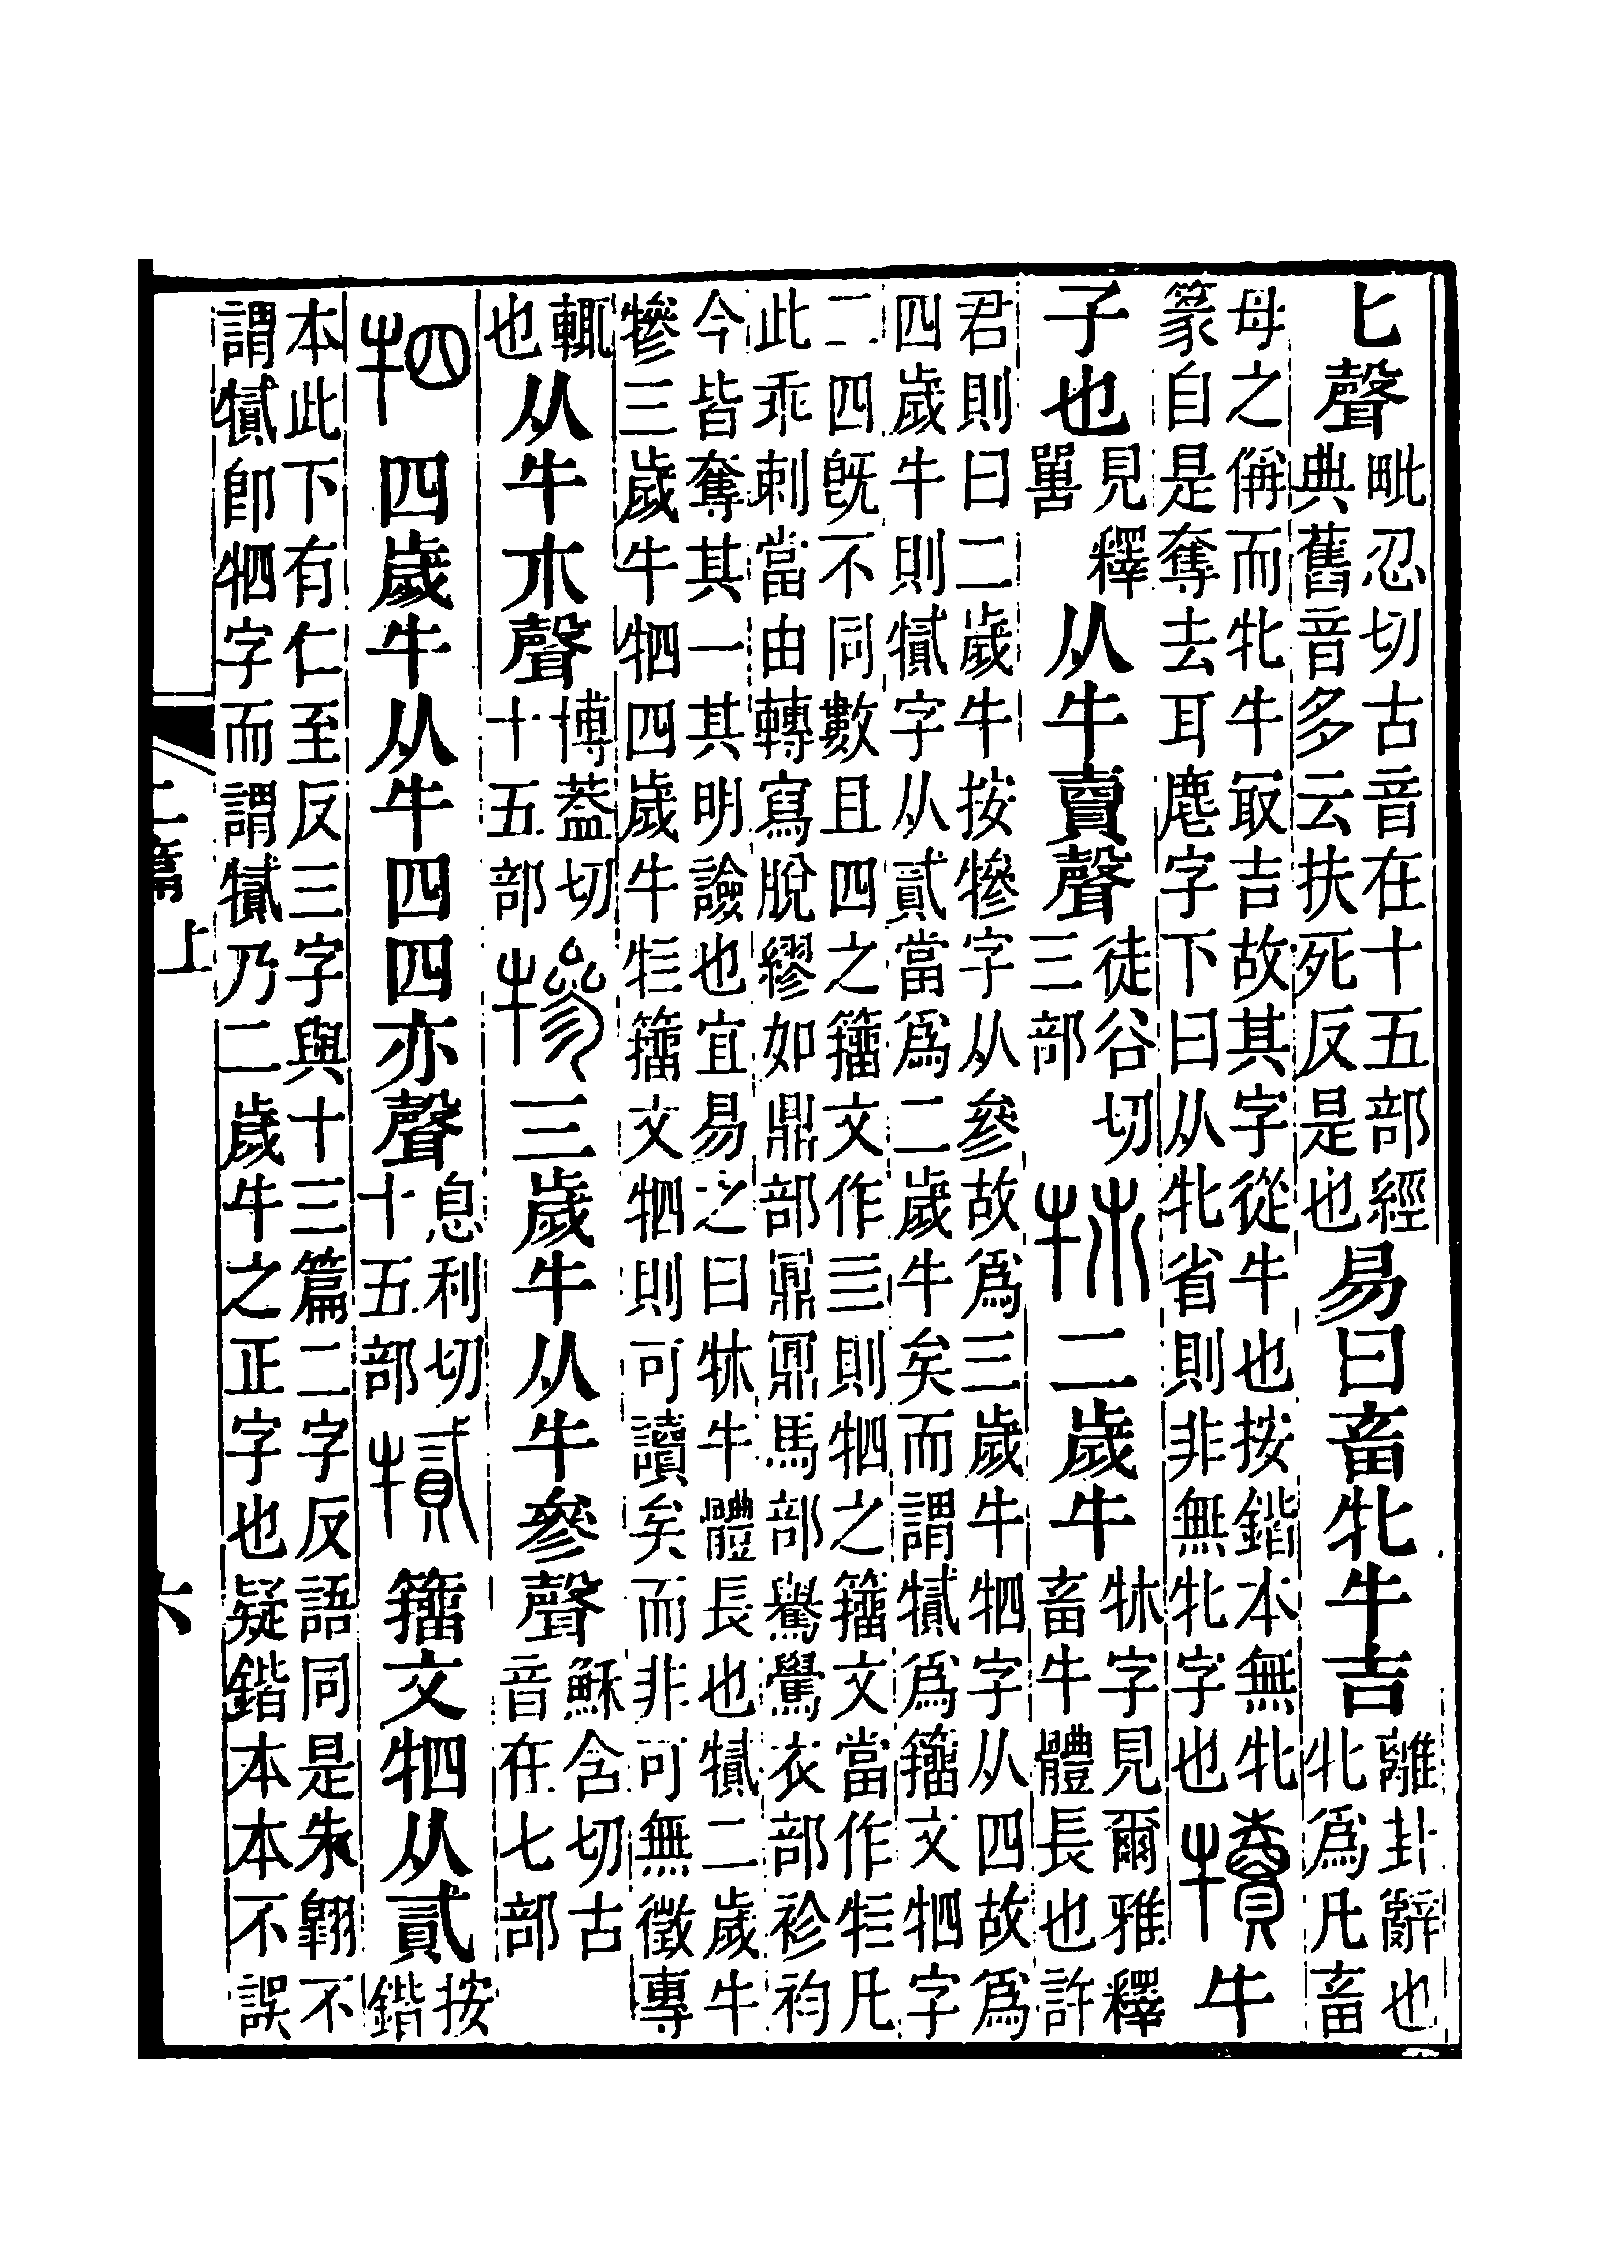 匕聲毗忍切古音在十五部經
典舊音多云扶死反是也易曰畜牝牛吉離卦辭也
牝爲凡畜
母之偁而牝牛冣吉故其字從牛也按鍇本無牝
篆自是奪去耳麀字下曰从牝省則非無牝字也犢牛
子也見釋
嘼从牛𧶠聲徒谷切
三部㸬二歲牛㸬字見爾雅釋
畜牛體長也許
君則曰二歲牛按犙字从參故爲三歲牛牭字从四故爲
四歲牛則𤛠字从貳當爲二歲牛矣而謂𤛠爲籒文牭字
二四旣不同數且四之籒文作亖則牭之籒文當作⿰牛亖凡
此乖剌當由轉寫脫繆如鼎部鼏鼏馬部驇騺衣部袗袀
今皆奪其一其明譣也宜易之曰㸬牛體長也𤛠二歲牛
犙三歲牛牭四歲牛⿰牛亖籒文牭則可讀矣而非可無徵專
輒
也从牛𣎵聲博蓋切
十五部犙三歲牛从牛參聲穌含切古
音在七部
牭四歲牛从牛四四亦聲息利切
十五部𤛠籒文牭从貳按
鍇
本此下有仁至反三字與十三篇二字反語同是朱翺不
謂𤛠卽牭字而謂𤛠乃二歲牛之正字也疑鍇本本不誤
二篇上
六